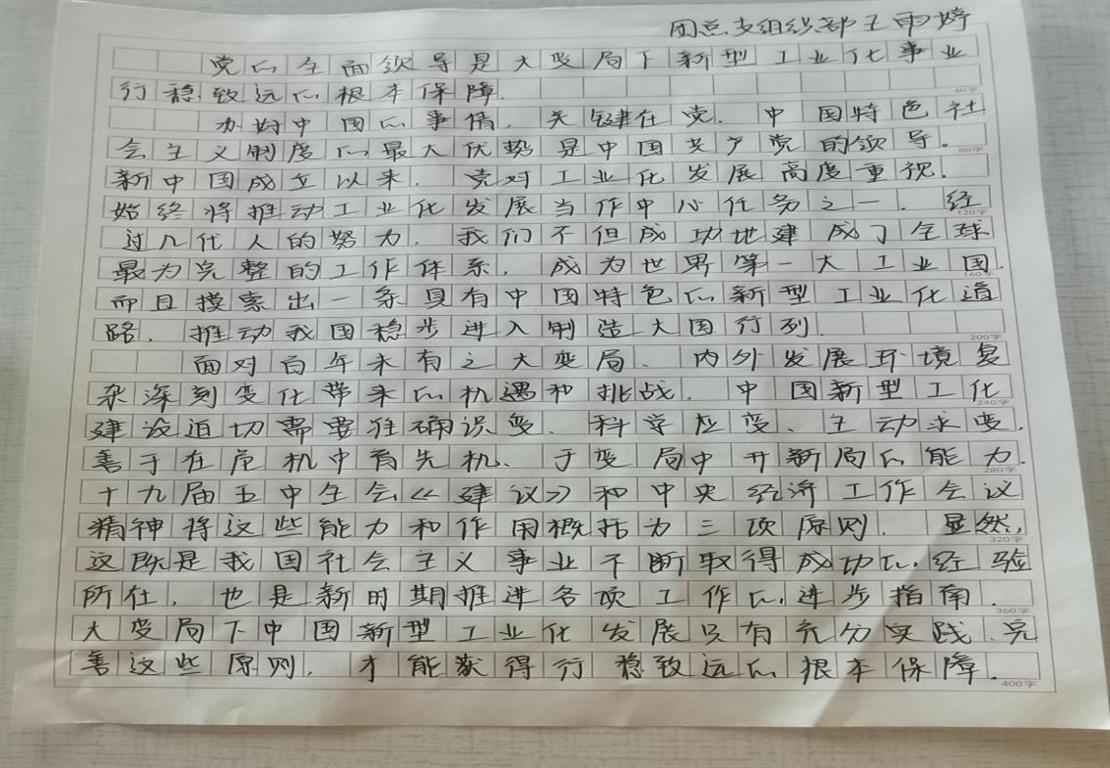 团总支组织部王雨婷
党的全面领导是大变局下新型工业化事业
行稳致远的根本保障.
40字
办好中国的事情，关键在党. 中国特色社
会主义制度的最大优势是中国共产党的领导.
80字
新中国成立以来，党对工业化发展高度重视.
始终将推动工业化发展当作中心任务之一. 经
120字
过几代人的努力，我们不但成功地建成了全球
最为完整的工作体系，成为世界第一大工业国.
160字
而且摸索出一条具有中国特色的新型工业化道
路，推动我国稳步进入制造大国行列.
200字
面对百年未有之大变局、内外发展环境复
杂深刻变化带来的机遇和挑战，中国新型工化
240字
建设迫切需要准确识变、科学应变、主动求变.
善于在危机中育先机、于变局中开新局的能力.
280字
十九届五中全会《建议》和中央经济工作会议
精神将这些能力和作用概括为三项原则. 显然,
320字
这既是我国社会主义事业不断取得成功的经验
所在，也是新时期推进各项工作的进步指南.
360字
大变局下中国新型工业化发展只有充分实践、完
善这些原则，才能获得行稳致远的根本保障.
400字